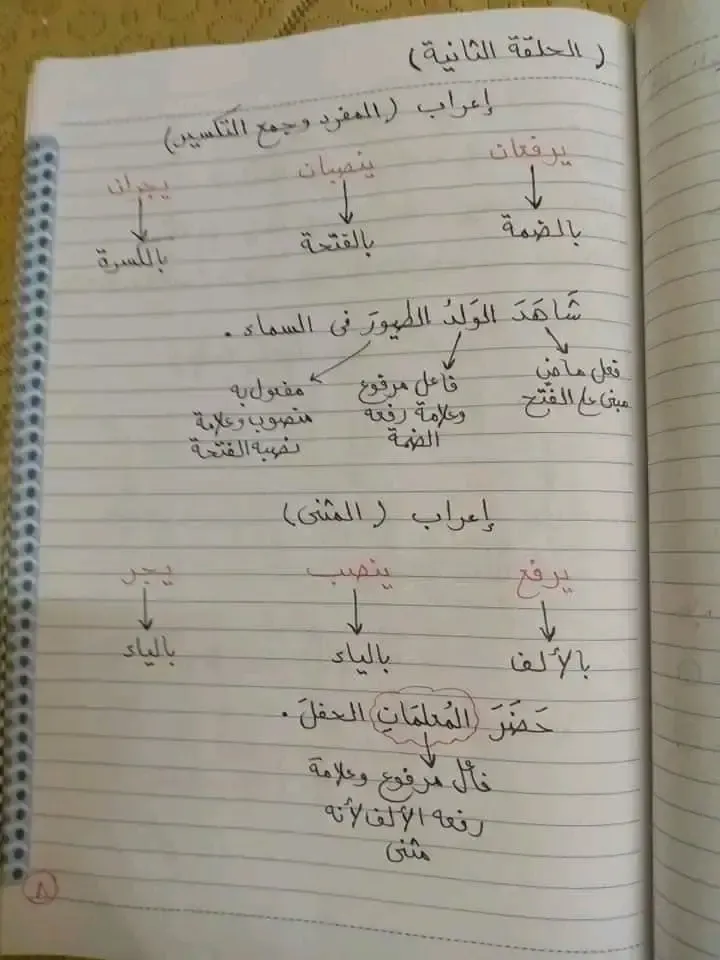 (الحلقة الثانية)
إعراب (المفرد وجمع التكسير)
يرفعان ينصبان يجران
بالضمة بالفتحة بالكسرة
شَاهَدَ الوَلدُ الطيورَ فى السماء.
فعل ماضي فاعل مرفوع مفعول به
مبنى على الفتح وعلامة رفعه منصوب وعلامة
الضمة نصبه الفتحة
إعراب (المثنى)
يرفع ينصب يجر
بالألف بالياء بالياء
حَضَرَ المُعلمَانِ الحفلَ.
فاعل مرفوع وعلامة
رفعه الألف لأنه
مثنى
٨